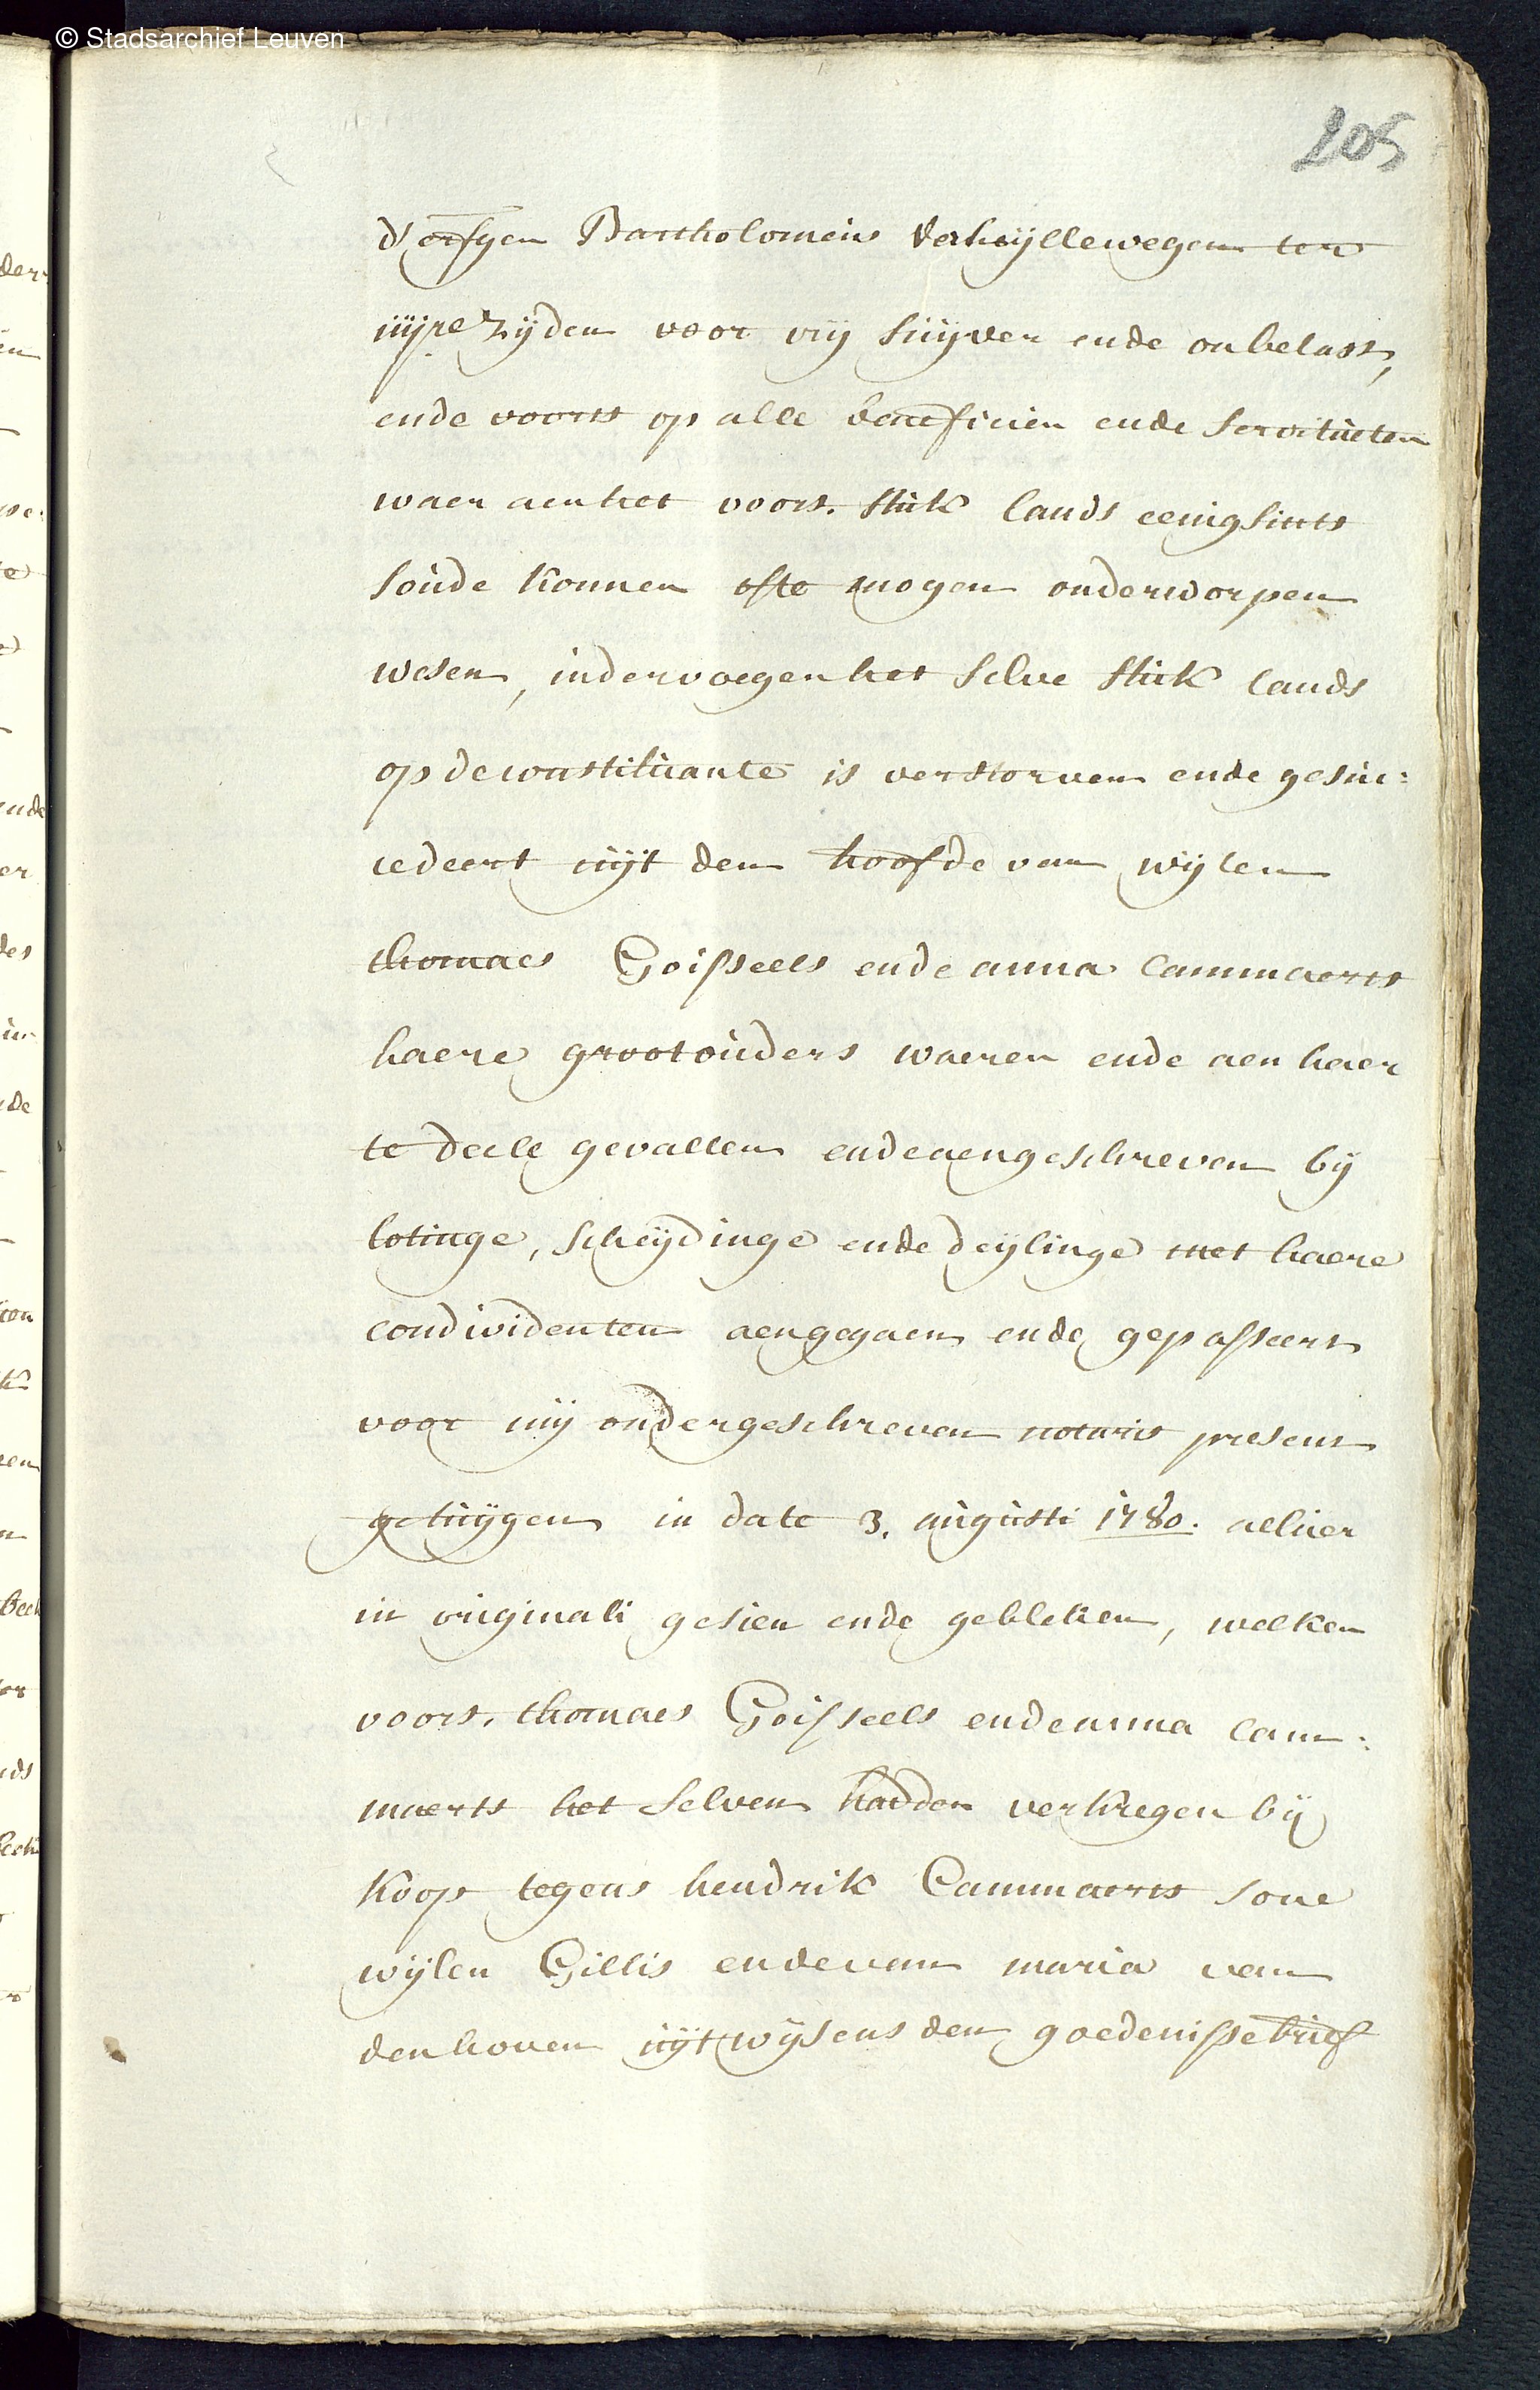 © Stadsarchief Leuven
205
d'erfgen Bartholomeus Verheyllewegen ter
iiijre zijden voor vrij suijver ende onbelast,
ende voorts op alle beneficien ende servituten
waer aen het voors. stuk lands eenigsints
soude konnen ofte mogen onderworpen
wesen, indervoegen het selve stuk lands
op de constituante is verstorven ende gesuc:
cedeert uijt den hoofde van wijlen
thomaes Goisseels ende anna Cammaerts
haere grootouders waeren ende aen haer
te deele gevallen ende aengeschreven bij
lotinge, scheijdinge ende deijlinge met haere
condividenten aengegaen ende gepasseert
voor mij ondergeschreven notaris present
getuijgen in date 3. augusti 1780. alhier
in originali gesien ende gebleken, welken
voors. thomaes Goisseels ende anna Cam:
maerts het selven hadden verkregen bij
koop tegens hendrik Cammaerts sone
wijlen Gillis ende van maria van
den hoven uijtwijsens den goedenissebrief